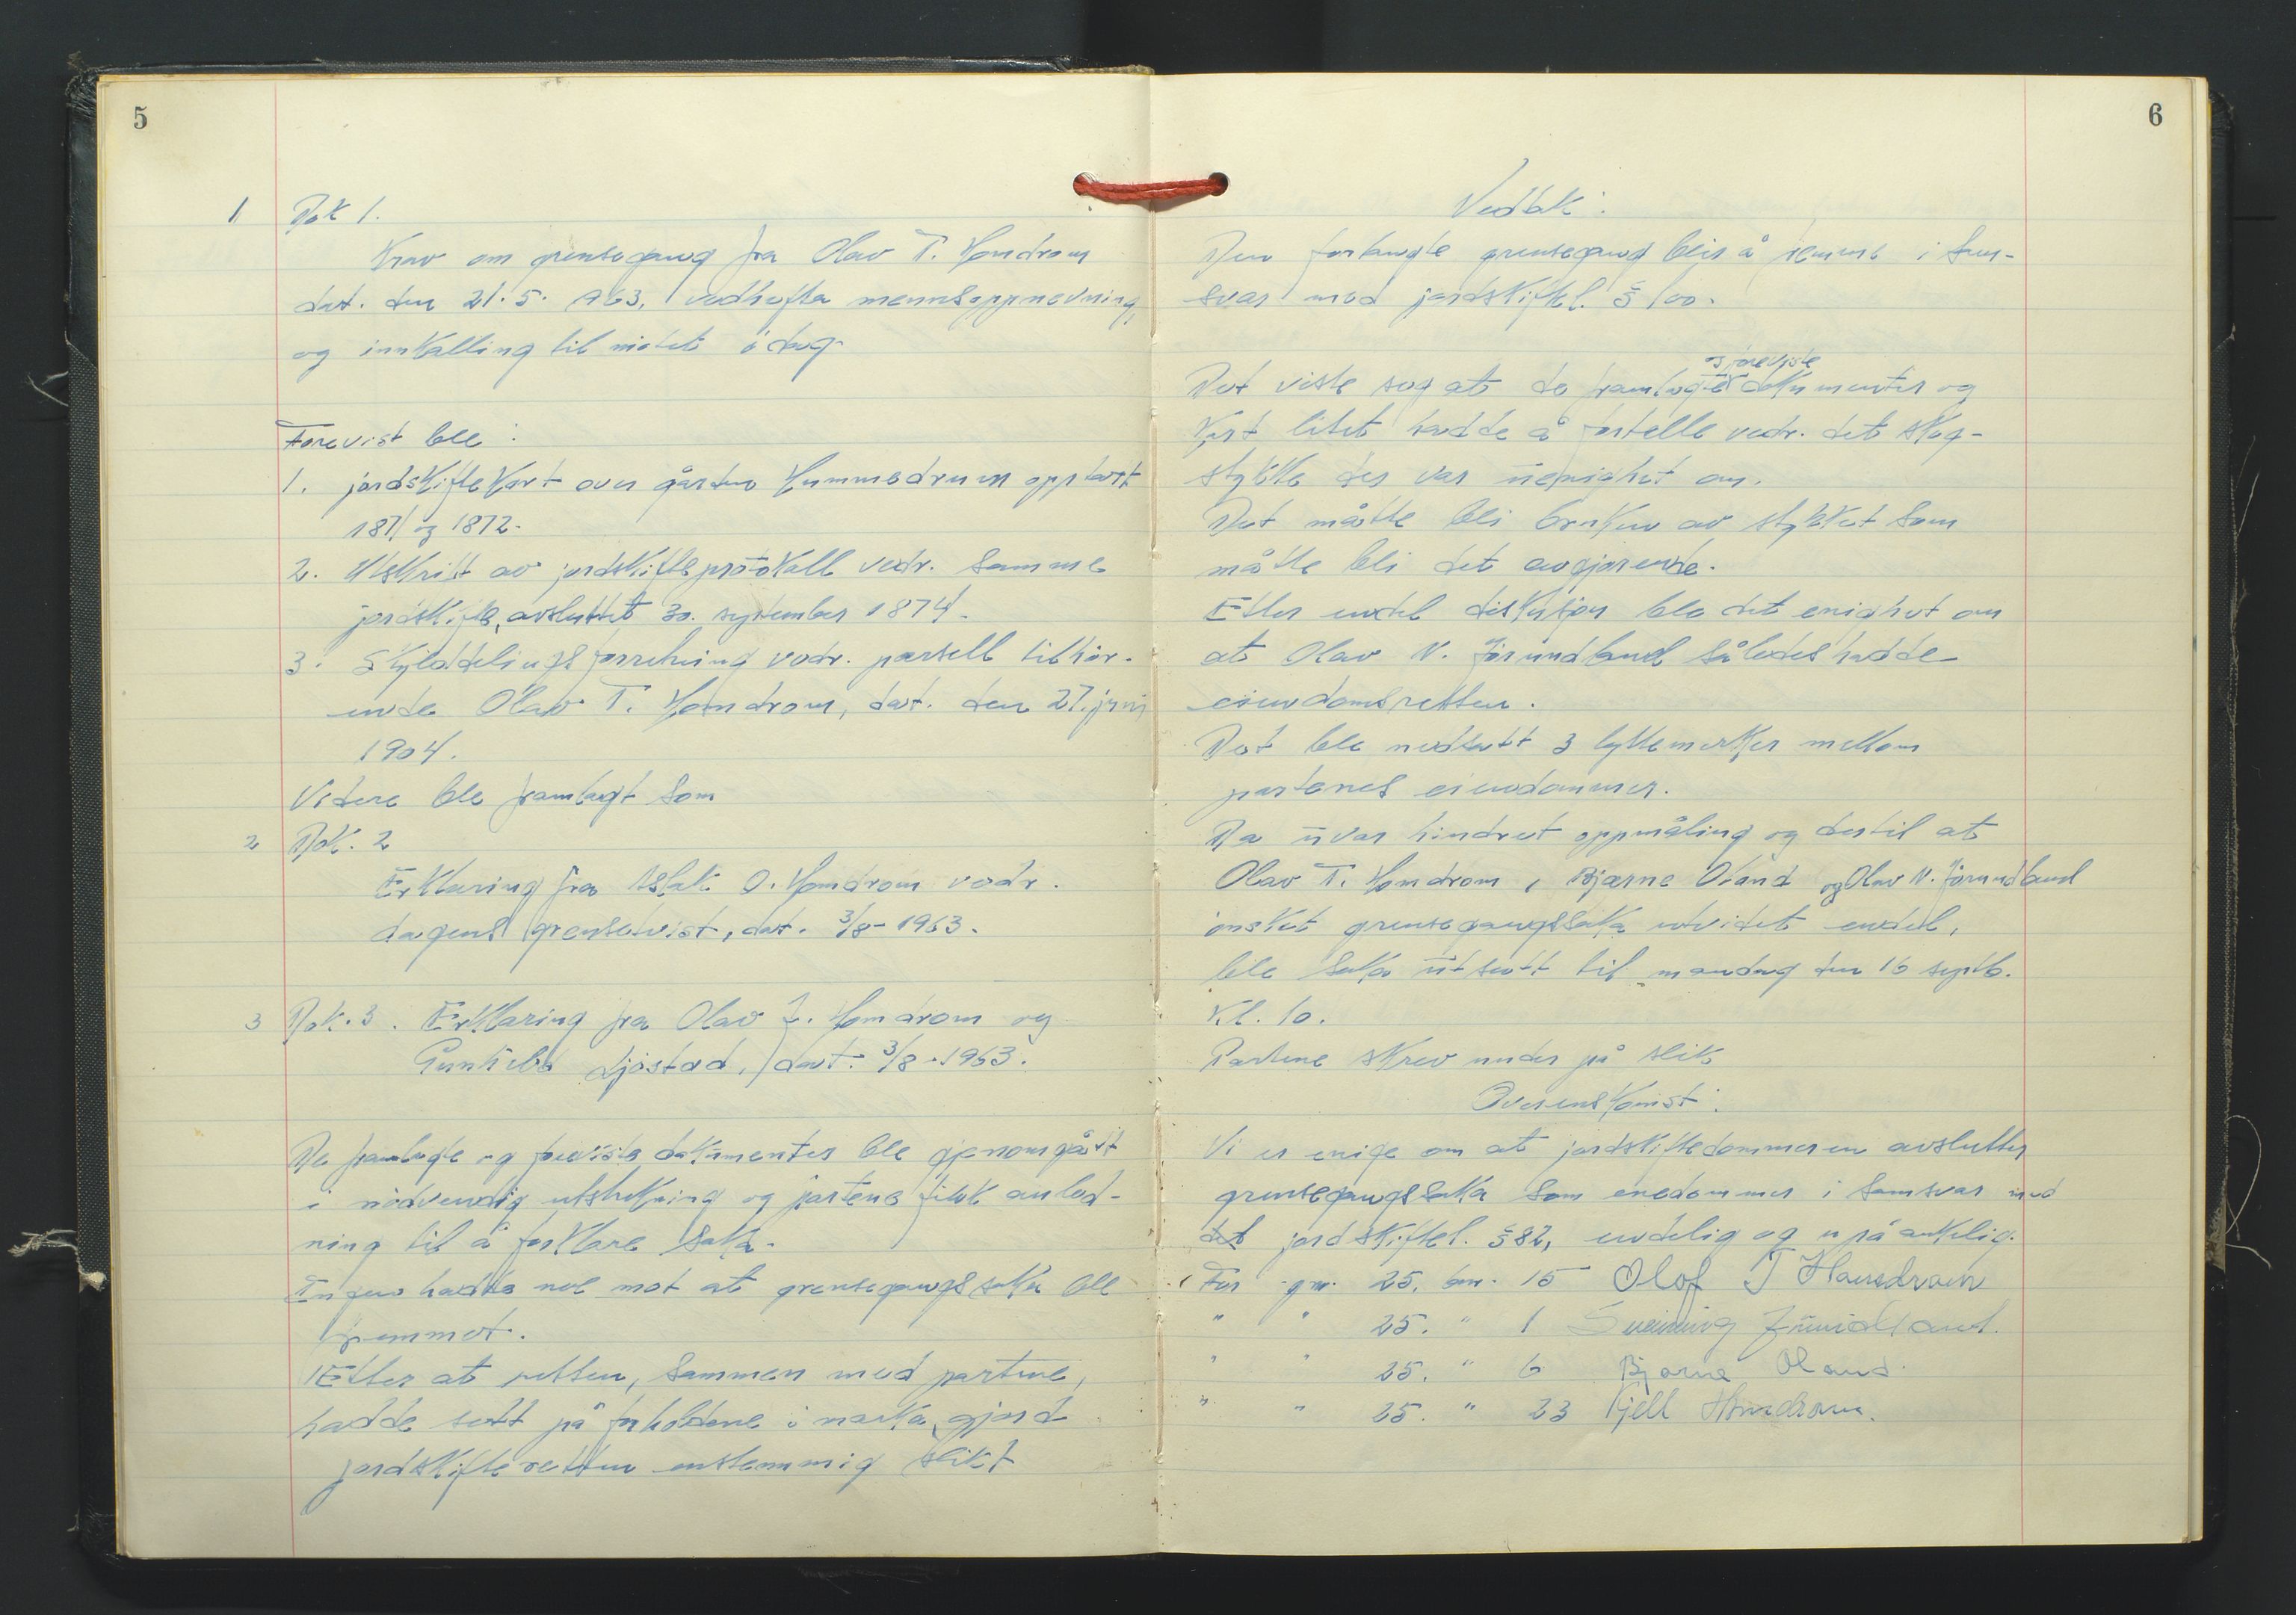 5
1 Dok 1.
Krav om grensegang fra Olav T. Homdrom
dat. den 21.5. 1963, vedhefta mennsoppnevning,
og innkalling til møtet i dag.
Forevist ble:
1. jordskiftekart over gården Hummedrum opptatt
1871 og 1872.
2. Utskrift av jordskifteprotokoll vedr. samme
jordskifte, avsluttet 30. september 1874.
3. Skylddelingsforretning vedr. parsell tilhør-
ende Olav T. Homdrom, dat. den 27. juni
1904.
Videre ble framlagt som
2 Dok. 2
Erklæring fra Aslak O. Homdrom vedr.
dagens grensetvist, dat. 3/8-1963.
3 Dok. 3. Erklæring fra Olav J. Homdrom og
Ljøstad, dat. 3/8-1963.
De framlagte og foreviste dokumenter ble gjennomgått
i nødvendig utstrekning og partene fikk anled-
ning til å forklare saka.
Ingen hadde noe mot at grensegangssaka ble
fremmet.
Etter at retten, sammen med partene,
hadde sett på forholdene i marka, gjord
jordskifteretten enstemmig slikt
6
Vedtak:
Den forlangte grensegang blir å fremme i sam-
svar med jordskiftel. § 100.
og foreviste
Det viste seg at de framlagte dokumenter og
kart litet hadde å fortelle vedr. det skog-
stykke der var uenighet om.
Det måtte bli bruken av stykket som
måtte bli det avgjørende.
Etter endel diskusjon ble det enighet om
at Olav N. Jørundland således hadde
eiendomsretten.
Det ble nedsatt 3 byttemerker mellom
partenes eiendommer.
Da uvær hindret oppmåling og dertil at
Olav T. Homdrom, Bjarne Øland og Olav N. Jørundland
ønsket grensegangssaka utvidet endel,
ble saka utsatt til mandag den 16 septb.
Kl. 10.
Partene skrev under på slik
Overenskomst:
Vi er enige om at jordskiftedommeren avslutter
grensegangssaka som enedommer i samsvar med
jordskiftel. § 82, endelig og upåankelig.
For gnr. 25, bnr. 15 Olof T Homdrom
" " 25. " 1 Sveinung Jørundland.
" " 25. " 6 Bjarne Øland.
" " 25. " 23 Kjell Homdrom.